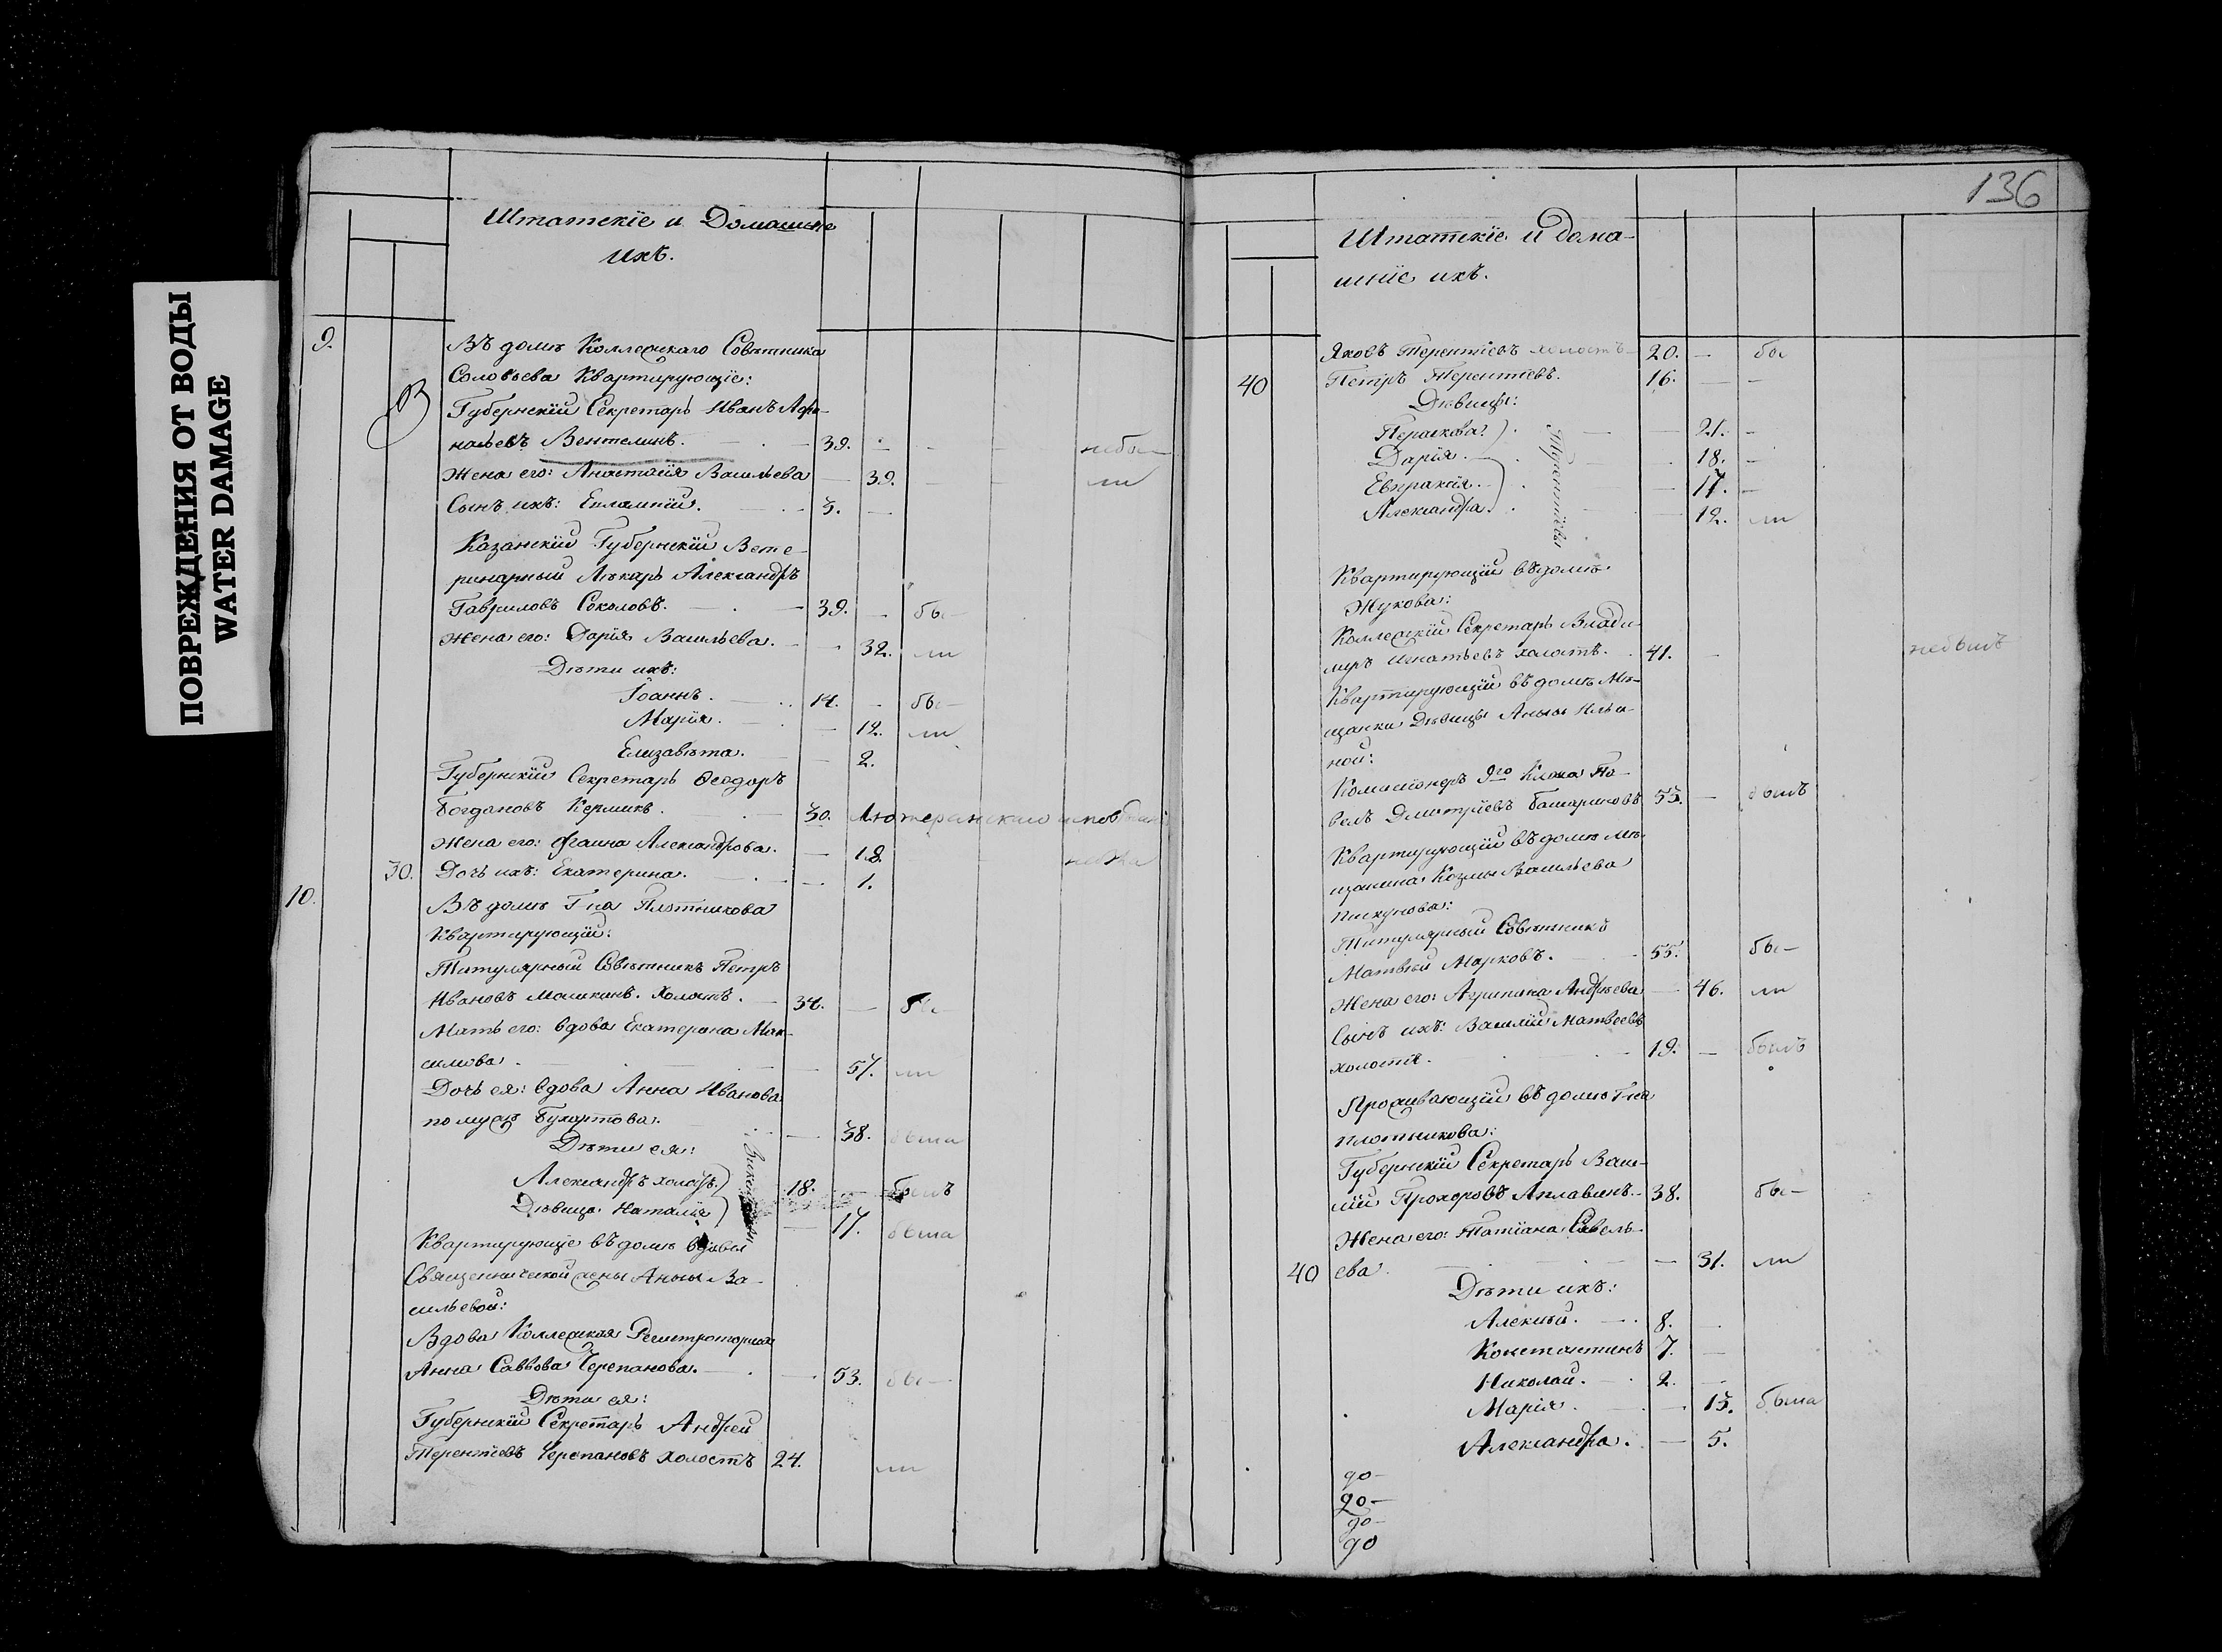 ПОВРЕЖДЕНИЯ ОТ ВОДЫ
WATER DAMAGE
Штатскіе и Домашніе
ихъ.
9.
Въ домѣ Коллежскаго Совѣтника
Соловьева Квартирующіе:
Губернскій Секретарь Иванъ Афа-
насьевъ 39. — — — небы—
Жена его: Анастасія Васильева — 39. — — ли
Сынъ ихъ: Евлампій. 3. —
Казанскій Губернскій Вете-
ринарный Лѣкарь Александръ
Гавриловъ Соколовъ. — 39. — бы—
Жена его: Дарія Васильева. — 32. ли
Дѣти ихъ:
Іоаннъ. 14. — бы—
Марія. — 12. ли
Елизавета. — 2.
Губернскій Секретарь Ѳеодоръ
Богдановъ — 30. Лютеранскаго
Жена его: Александрова. — 18.
30. Дочь ихъ: Екатерина. — 1.
10.
Въ домѣ Г-на Плотникова
Квартирующій:
Титулярный Совѣтникъ Петръ
Ивановъ Машкинъ. Холостъ. — 34. — бы—
Мать его: вдова Екатерина Мак-
симова. — 57. ли
Дочь ея: вдова Анна Иванова
по мужѣ Бухартова. — 38. была
Дѣти ея:
Александръ холос. 18. — былъ
Дѣвица Наталія — 17. была
Квартирующіе въ домѣ вдовы
Священнической жены Анны Ва-
сильевой:
Вдова Коллежская Регистраторша
Анна Саввова Черепанова. — 53. бы—
Дѣти ея:
Губернскій Секретарь Андрей
Терентіевъ Черепановъ холостъ 24. ли
136
Штатскіе и дома-
шніе ихъ.
Яковъ Терентіевъ холостъ 20. — бы
40 Петръ Терентіевъ. 16. — —
Дѣвицы:
Параскева. — 21. —
Дарія. — 18. —
Евпраксія. — 17. —
Александра. — 12. ли
Терентіевы
Квартирующій въ домѣ
Жукова:
Коллежскій Секретарь Влади-
миръ Игнатьевъ холостъ. 41. — небылъ
Квартирующій въ домѣ Мѣ-
щанки Дѣвицы Анны Ильи-
ной:
9го Класса Па-
велъ Дмитріевъ 53. — былъ
Квартирующій въ домѣ мѣ-
щанина Козмы Васильева
Пискунова:
Титулярный Совѣтникъ
Матвѣй Марковъ. 55. бы—
Жена его: Агрипина Андреева — 46. ли
Сынъ ихъ: Василій Матвеевъ
холостъ. 19. — былъ
Проживающій въ домѣ Г-на
Плотникова:
Губернскій Секретарь Васи-
лій Прохоровъ 38. бы—
Жена его: Татіана Савель-
40 ева. — 31. ли
Дѣти ихъ:
Алексѣй. 8. —
Константинъ 7. —
Николай. 2. —
Марія. — 13. была
Александра. — 5.
до—
до—
до—
до